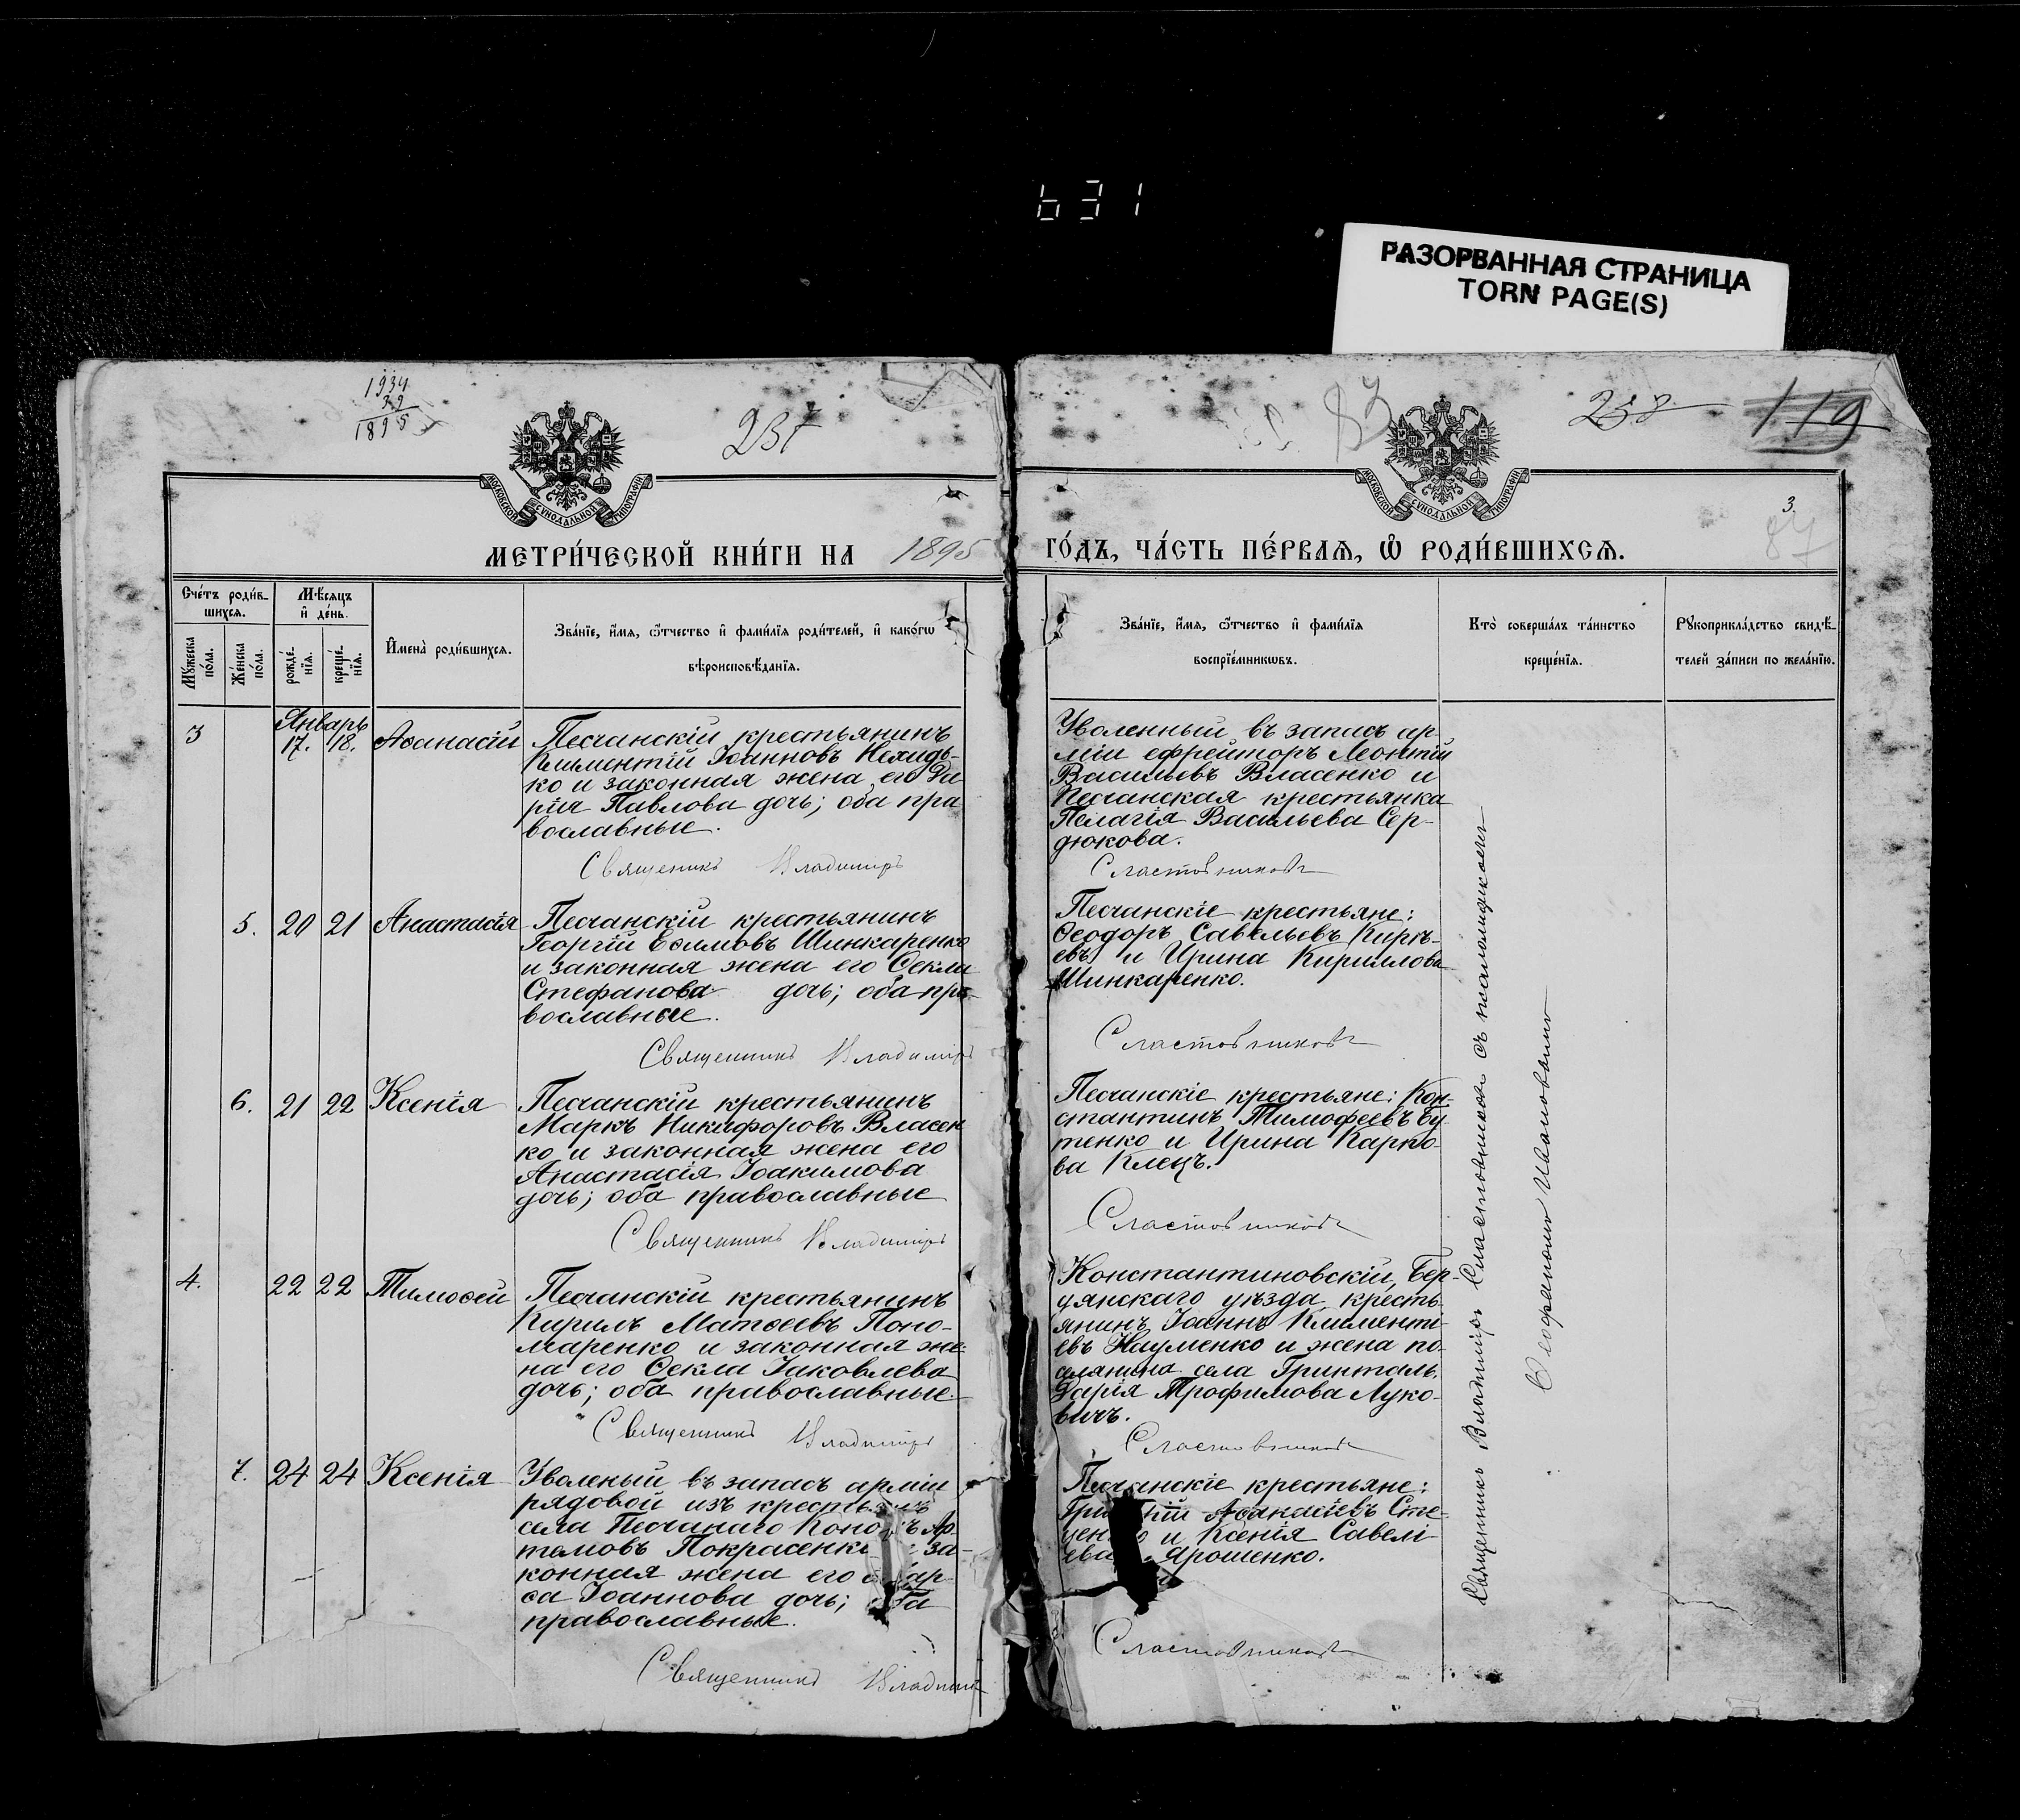 631
РАЗОРВАННАЯ СТРАНИЦА
TORN PAGE(S)
1934
39
1895
237
83
238
119
МОСКОВСКОЙ СѴНОДАЛЬНОЙ ТИПОГРАФІИ
МОСКОВСКОЙ СѴНОДАЛЬНОЙ ТИПОГРАФІИ
3.
87
МЕТРИ́ЧЕСКОЙ КНИ́ГИ НА 1895 ГО́ДЪ, ЧА́СТЬ ПЕ́РВАЯ, Ѡ҆ РОДИ́ВШИХСЯ.
Сче́тъ роди́в-
шихся.
Мѣ́сяцъ
и҆ де́нь.
Мꙋ́жеска
по́ла.
Же́нска
по́ла.
рожде́-
нїя.
креще́-
нїя.
И҆мена̀ роди́вшихся.
Зва́нїе, и҆́мя, ѻ҆́тчество и҆ фами́лїя роди́телей, и҆ како́гѡ
вѣроисповѣ́данїя.
Зва́нїе, и҆́мя, ѻ҆́тчество и҆ фами́лїя
воспрїе́мникѡвъ.
Кто̀ соверша́лъ та́инство
креще́нїя.
Рꙋкоприкла́дство свидѣ́-
телей за́писи по жела́нїю.
3
Январь
17. 18.
Аѳанасій
Песчанскій крестьянинъ
Климентій Іоанновъ Нехидь-
ко и законная жена его Да
рія Павлова дочь; оба пра
вославные.
Священикъ Владимиръ
Уволенный въ запасъ ар-
міи ефрейторъ Леонтій
Васильевъ Власенко и
Песчанская крестьянка
Пелагія Васильева Сер-
дюкова.
Сластовниковъ
5. 20 21 Анастасія
Песчанскій крестьянинъ
Георгій Еѳимовъ Шинкаренко
и законная жена его Ѳекла
Стефанова дочь; оба пра-
вославные.
Священникъ Владимиръ
Песчанскіе крестьяне:
Ѳеодоръ Савельевъ Кирѣ-
евъ и Ирина Кириллова
Шинкаренко.
Сластовниковъ
6. 21 22 Ксенія
Песчанскій крестьянинъ
Маркъ Никифоровъ Власен
ко и законная жена его
Анастасія Іоакимова
дочь; оба православные
Священникъ Владимиръ
Песчанскіе крестьяне: Кон-
стантинъ Тимофеевъ Бу-
тенко и Ирина Карпо-
ва Клецъ.
Сластовниковъ
4. 22 22 Тимоѳей
Песчанскій крестьянинъ
Кирилъ Матѳеевъ Поно-
маренко и законная же-
на его Ѳекла Іаковлева
дочь; оба православные.
Священникъ Владимиръ
Константиновскій, Бер-
дянскаго уѣзда кресть-
янинъ Іоаннъ Клименті-
евъ Науменко и жена по-
селянина села Гринталь
Дарія Трофимова Луко-
вичъ.
Сластовниковъ
7. 24 24 Ксенія
Уволеный въ запасъ арміи
рядовой изъ крестьянъ
села Песчанаго Коно ъ Ар-
темовъ Покрасенко за-
конная жена его ар-
ѳа Іоаннова дочь; оба
православные.
Священникъ Владимиръ
Песчанскіе крестьяне:
Гри рій Аѳанасіевъ Сте-
ценко и Ксенія Савелі-
ева Ярошенко.
Сластовниковъ
Священникъ Владимиръ Сластовниковъ съ псаломщикомъ
Ѳеофаномъ Ивановымъ